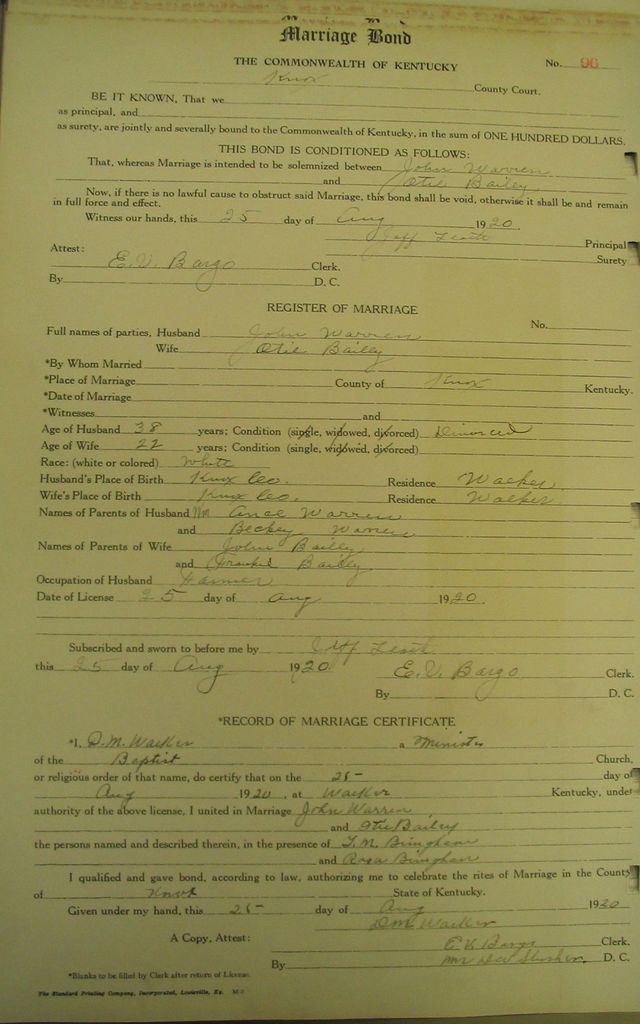 Marriage Bond
THE COMMONWEALTH OF KENTUCKY No. 96
Knox County Court.
BE IT KNOWN, That we
as principal, and
as surety, are jointly and severally bound to the Commonwealth of Kentucky, in the sum of ONE HUNDRED DOLLARS.
THIS BOND IS CONDITIONED AS FOLLOWS:
That, whereas Marriage is intended to be solemnized between John Warren
and Otie Bailey
Now, if there is no lawful cause to obstruct said Marriage, this bond shall be void, otherwise it shall be and remain
in full force and effect.
Witness our hands, this 25 day of Aug 1920
Jeff Principal
Attest: Surety
E.V. Bargo Clerk.
By D. C.
REGISTER OF MARRIAGE
Full names of parties, Husband John Warren No.
Wife Otie Bailey
*By Whom Married
*Place of Marriage County of Knox Kentucky.
*Date of Marriage
*Witnesses and
Age of Husband 38 years; Condition (single, widowed, divorced) Divorced
Age of Wife 22 years; Condition (single, widowed, divorced)
Race: (white or colored) White
Husband's Place of Birth Knox Co. Residence Walker
Wife's Place of Birth Knox Co. Residence Walker
Names of Parents of Husband Wm Warren
and Beckey Warren
Names of Parents of Wife John Bailey
and Bailey
Occupation of Husband Farmer
Date of License 25 day of Aug 1920
Subscribed and sworn to before me by Jeff
this 25 day of Aug 1920 E.V. Bargo Clerk.
By D. C.
*RECORD OF MARRIAGE CERTIFICATE
*I, D.M. Walker a Minister
of the Baptist Church,
or religious order of that name, do certify that on the 25 day of
Aug 1920, at Walker Kentucky, under
authority of the above license, I united in Marriage John Warren
and Otie Bailey
the persons named and described therein, in the presence of Bingham
and Bingham
I qualified and gave bond, according to law, authorizing me to celebrate the rites of Marriage in the County
of Knox State of Kentucky.
Given under my hand, this 25 day of Aug 1920
D.M. Walker
A Copy, Attest: E.V. Bargo Clerk.
By D. C.
*Blanks to be filled by Clerk after return of License.
The Standard Printing Company, Incorporated, Louisville, Ky.